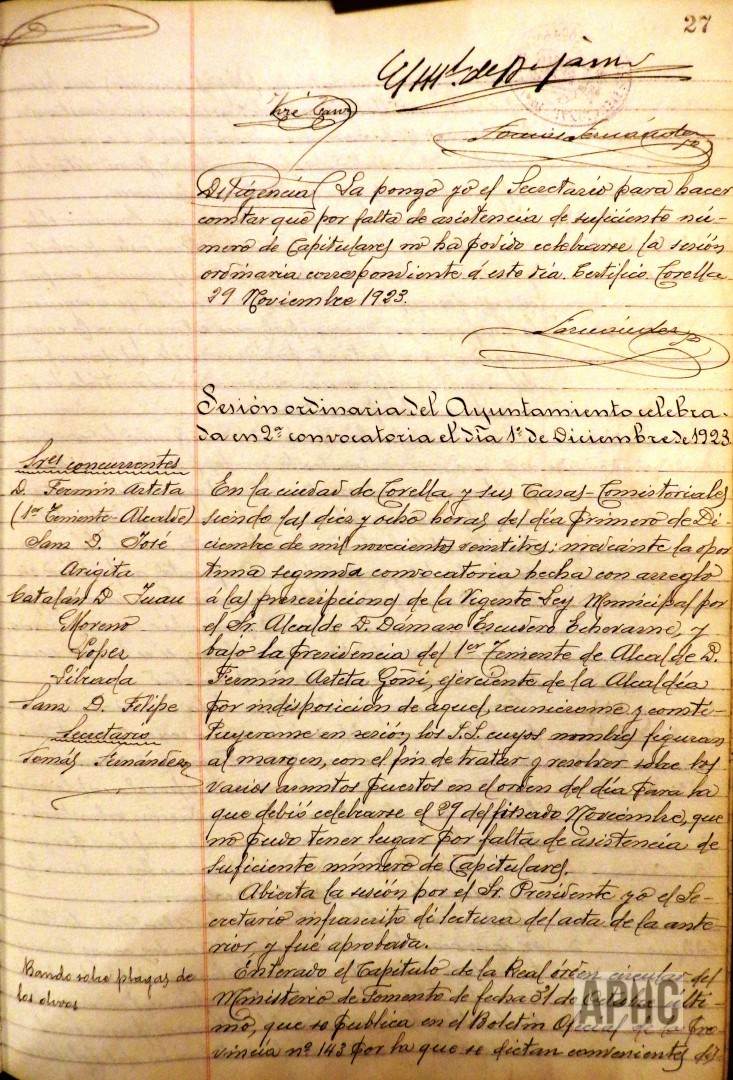 27
El M. de Bajamar
José Sanz
Tomás Fernández
Diligencia) La pongo yo el Secretario para hacer
constar que por falta de asistencia de suficiente nú-
mero de Capitulares no ha podido celebrarse la sesión
ordinaria correspondiente á este día. Certifico. Corella
29 Noviembre 1923.
Fernández
Sesión ordinaria del Ayuntamiento celebra-
da en 2ª convocatoria el día 1º de Diciembre de 1923.
Sres concurrentes
D. Fermín Arteta
(1er Teniente-Alcalde)
Sanz D. José
Arigita
Catalán D. Juan
Moreno
Lopez
Librada
Sanz D. Felipe
Secretario
Tomás Fernández
En la ciudad de Corella y sus Casas-Consistoriales
siendo las diez y ocho horas del día primero de Di-
ciembre de mil novecientos veintitres: mediante la opor
tuna segunda convocatoria hecha con arreglo
á las prescripciones de la Vigente Ley Municipal por
el Sr. Alcalde D. Dámaso Escudero Echavarne, y
bajo la presidencia del 1er Teniente de Alcalde D.
Fermín Arteta Goñi, ejerciente de la Alcaldía
por indisposición de aquel, reunieronse y consti-
tuyeronse en sesión los S.S. cuyos nombres figuran
al margen, con el fin de tratar y resolver sobre los
varios asuntos puestos en el orden del día para la
que debió celebrarse el 29 del finado Noviembre, que
no pudo tener lugar por falta de asistencia de
suficiente número de Capitulares.
Abierta la sesión por el Sr. Presidente yo el Se-
cretario infrascrito dí lectura del acta de la ante-
rior y fué aprobada.
Bando sobre plagas de
los olivos
Enterado el Capítulo de la Real órden circular del
Ministerio de Fomento de fecha 31 de Octubre últi-
mo, que se publica en el Boletín Oficial de la Pro-
vincia nº 143 por la que se dictan convenientes dis-
APHC